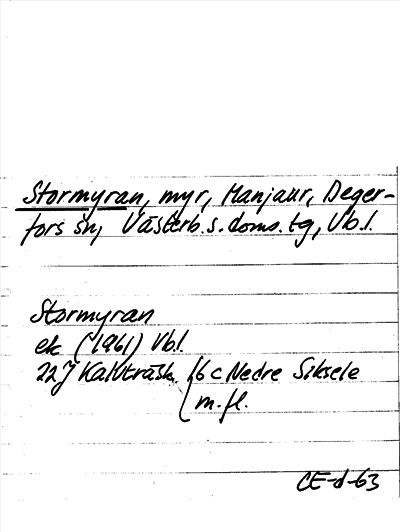 Stormyran, myr, Manjaur, Deger-
fors sn, Västerb. s. doms. tg, Vb.l.
Stormyran
ek (1961) Vbl.
22J Kalvträsk 6c Nedre Siksele
m. fl.
CE-d-63